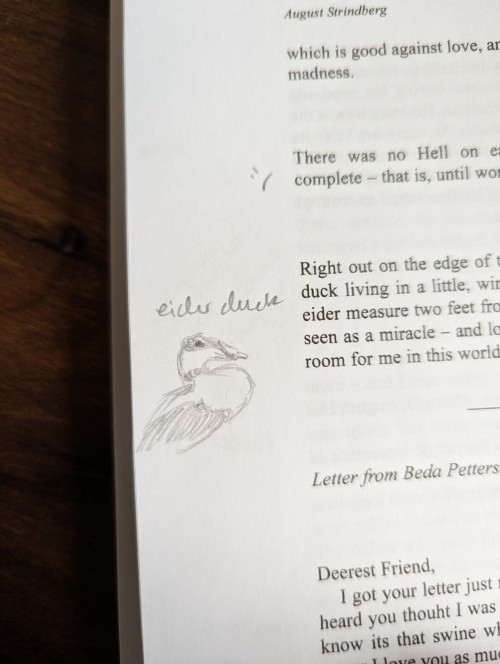 August Strindberg
which is good against love, an
madness.
There was no Hell on ea
complete – that is, until wor
Right out on the edge of t
duck living in a little, wir
eider measure two feet fro
seen as a miracle – and lo
room for me in this world
eider duck
Letter from Beda Petters
Deerest Friend,
I got your letter just
heard you thouht I was
know its that swine wh
I love you as muc